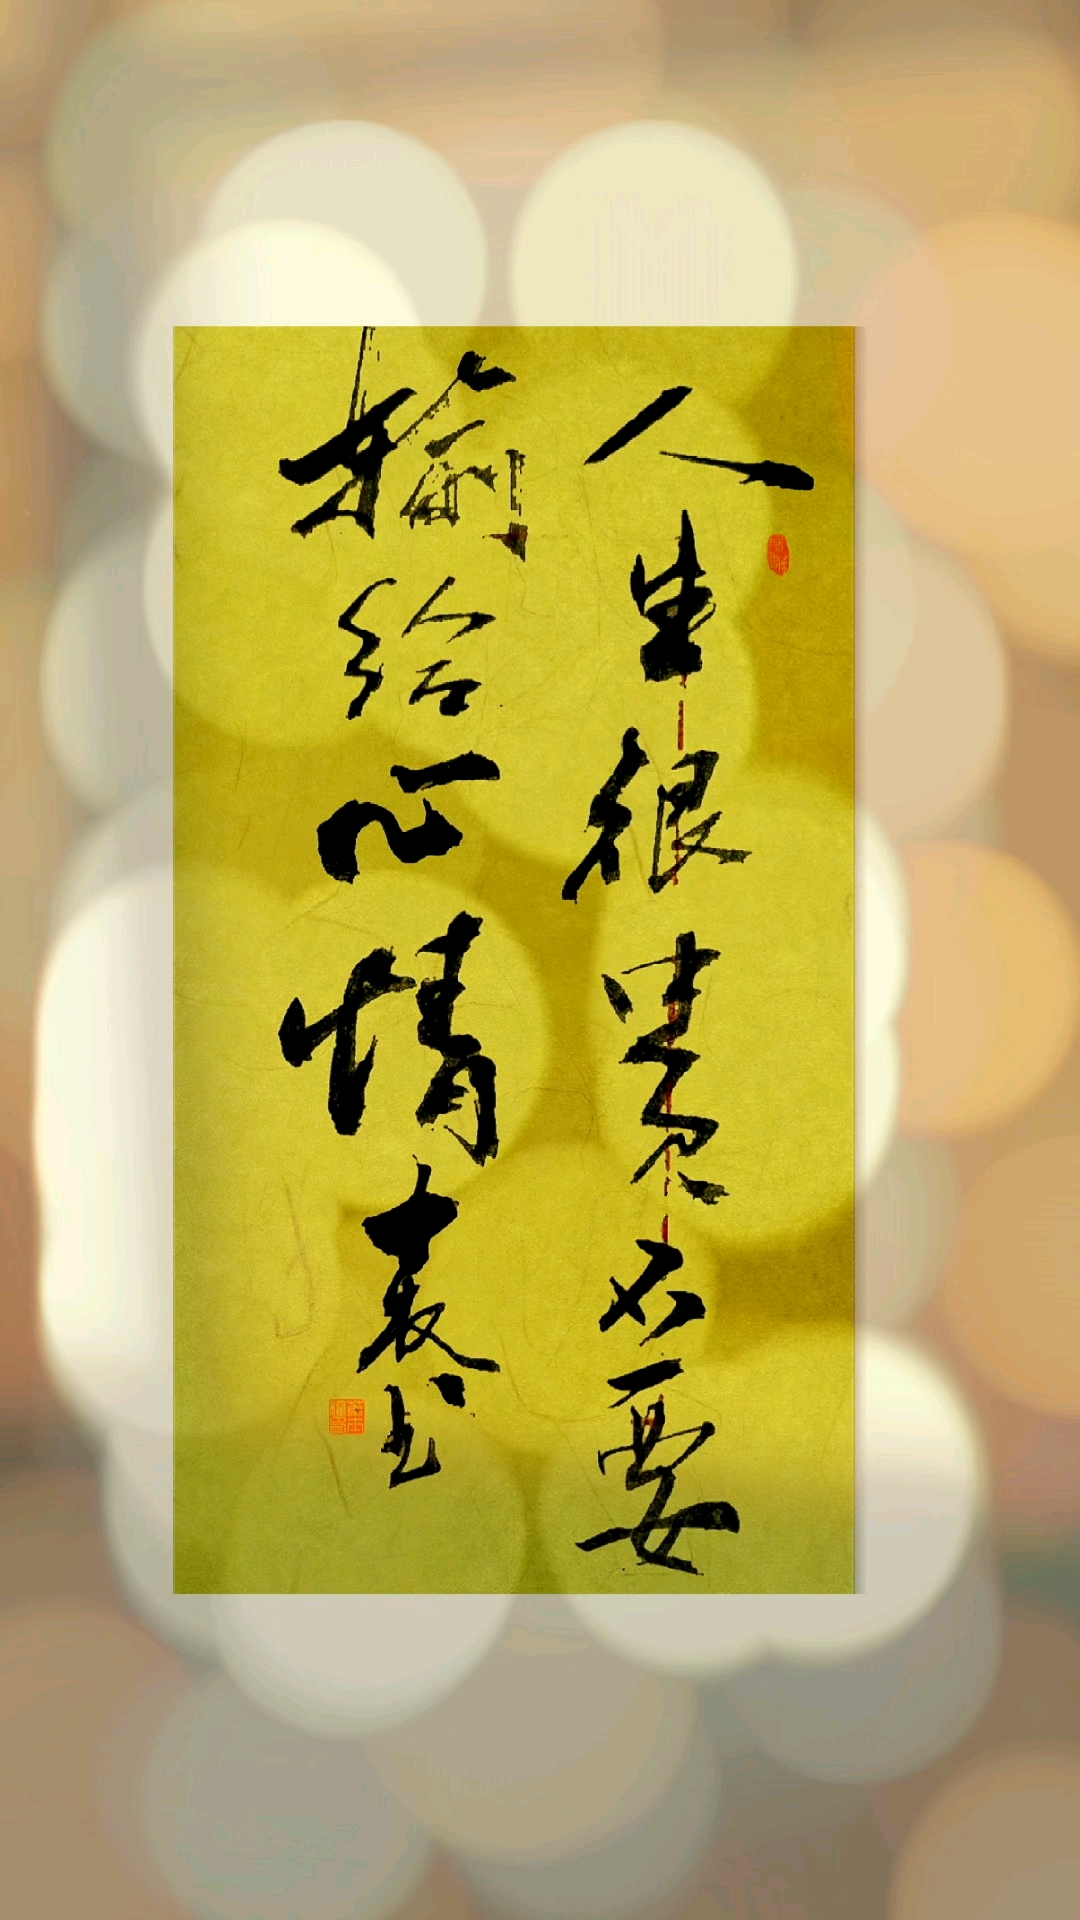 人生很贵不要
输给心情